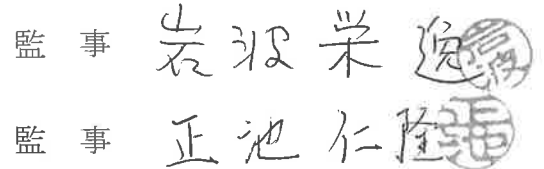 監 事 岩波栄逸
監 事 正池仁隆